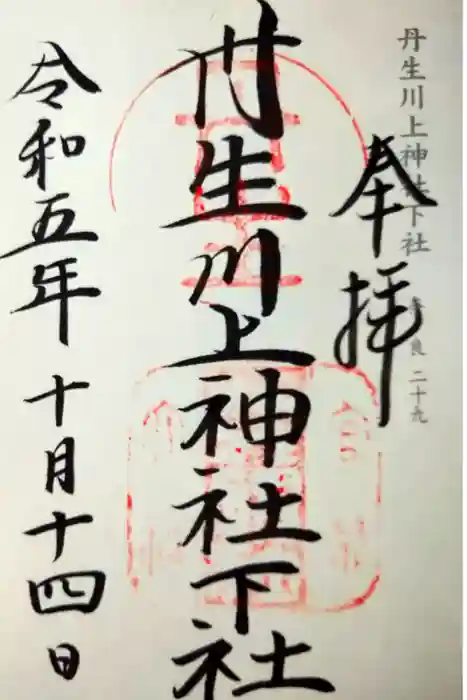 丹生川上神社下社 奈良 二十九
奉拝
丹生川上神社下社
令和五年十月十四日